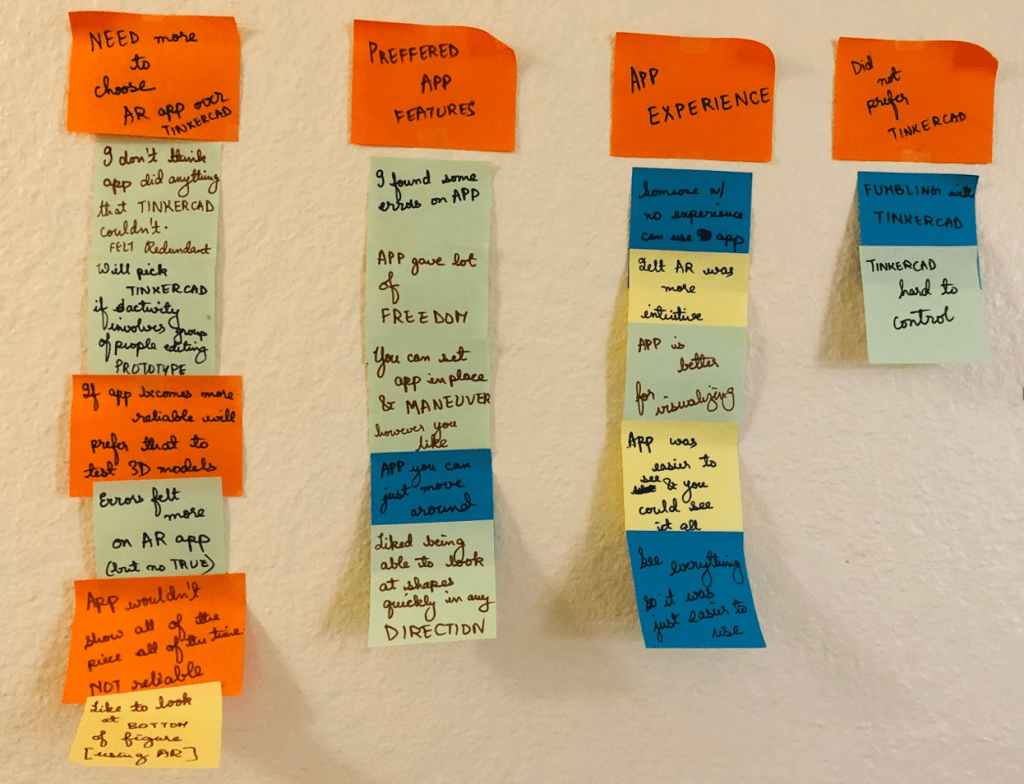 NEED more
to
choose
AR app over
TINKERCAD
I don't think
app did anything
that TINKERCAD
couldn't.
FELT Redundant
Will pick
TINKERCAD
if activity
involves group
of people editing
PROTOTYPE
If app becomes more
reliable will
prefer that to
test 3D models
Errors felt
more
on AR app
(but no TRUE)
App wouldn't
show all of the
piece all of the time
NOT reliable
Like to look
at BOTTOM
of figure
[using AR]
PREFFERED
APP
FEATURES
I found some
errors on APP
APP gave lot
of
FREEDOM
You can set
app in place
& MANEUVER
however you
like
APP you can
just move
around
Liked being
able to look
at shapes
quickly in any
DIRECTION
APP
EXPERIENCE
Someone w/
no experience
can use app
Felt AR was
more
intuitive
APP is
better
for visualizing
App was
easier to
see & you
could see
it all
See everything
so it was
just easier to
use
Did
not
prefer
TINKERCAD
FUMBLING with
TINKERCAD
TINKERCAD
hard to
control